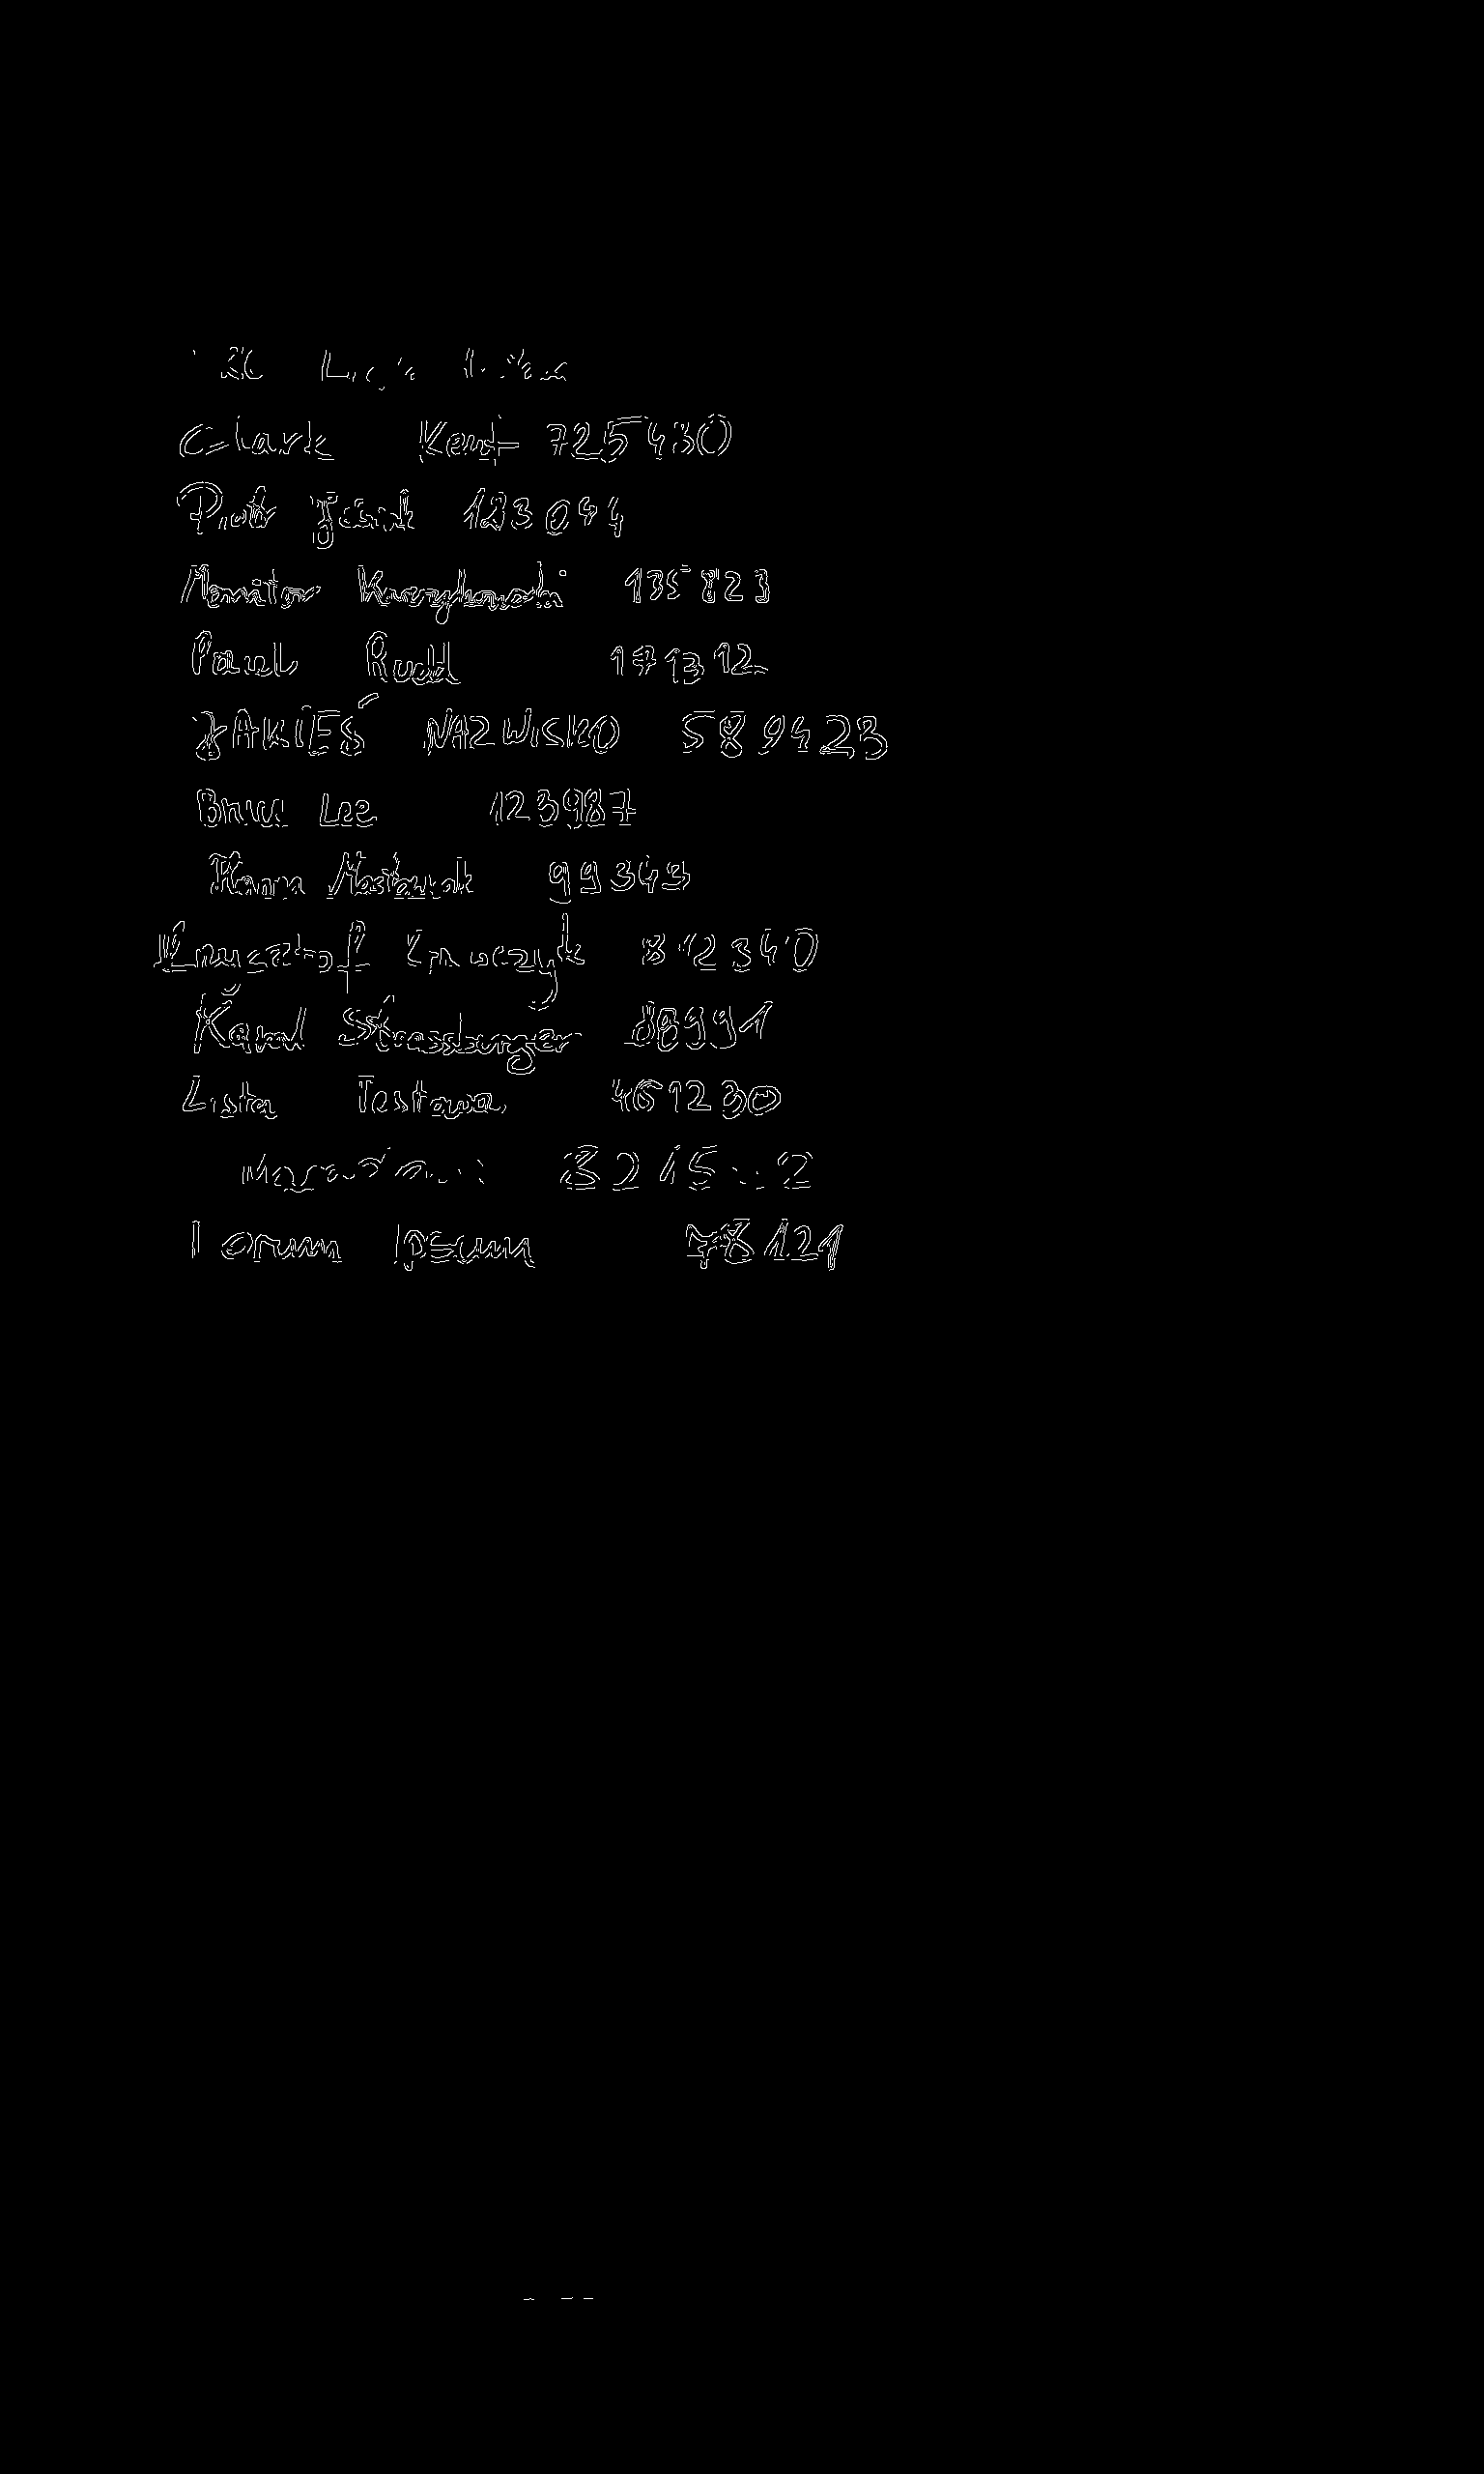 Clark Kent 725430
Piotr Jóźwik 123044
Monitor Kwerykowski 135823
Paul Rudd 171312
JAKIEŚ NAZWISKO 589423
Bruce Lee 123987
Hanna Mostowiak 99343
Krzysztof Krawczyk 812340
Karol Strassburger 88991
Lista Testowa 461230
Lorum Ipsum 78121